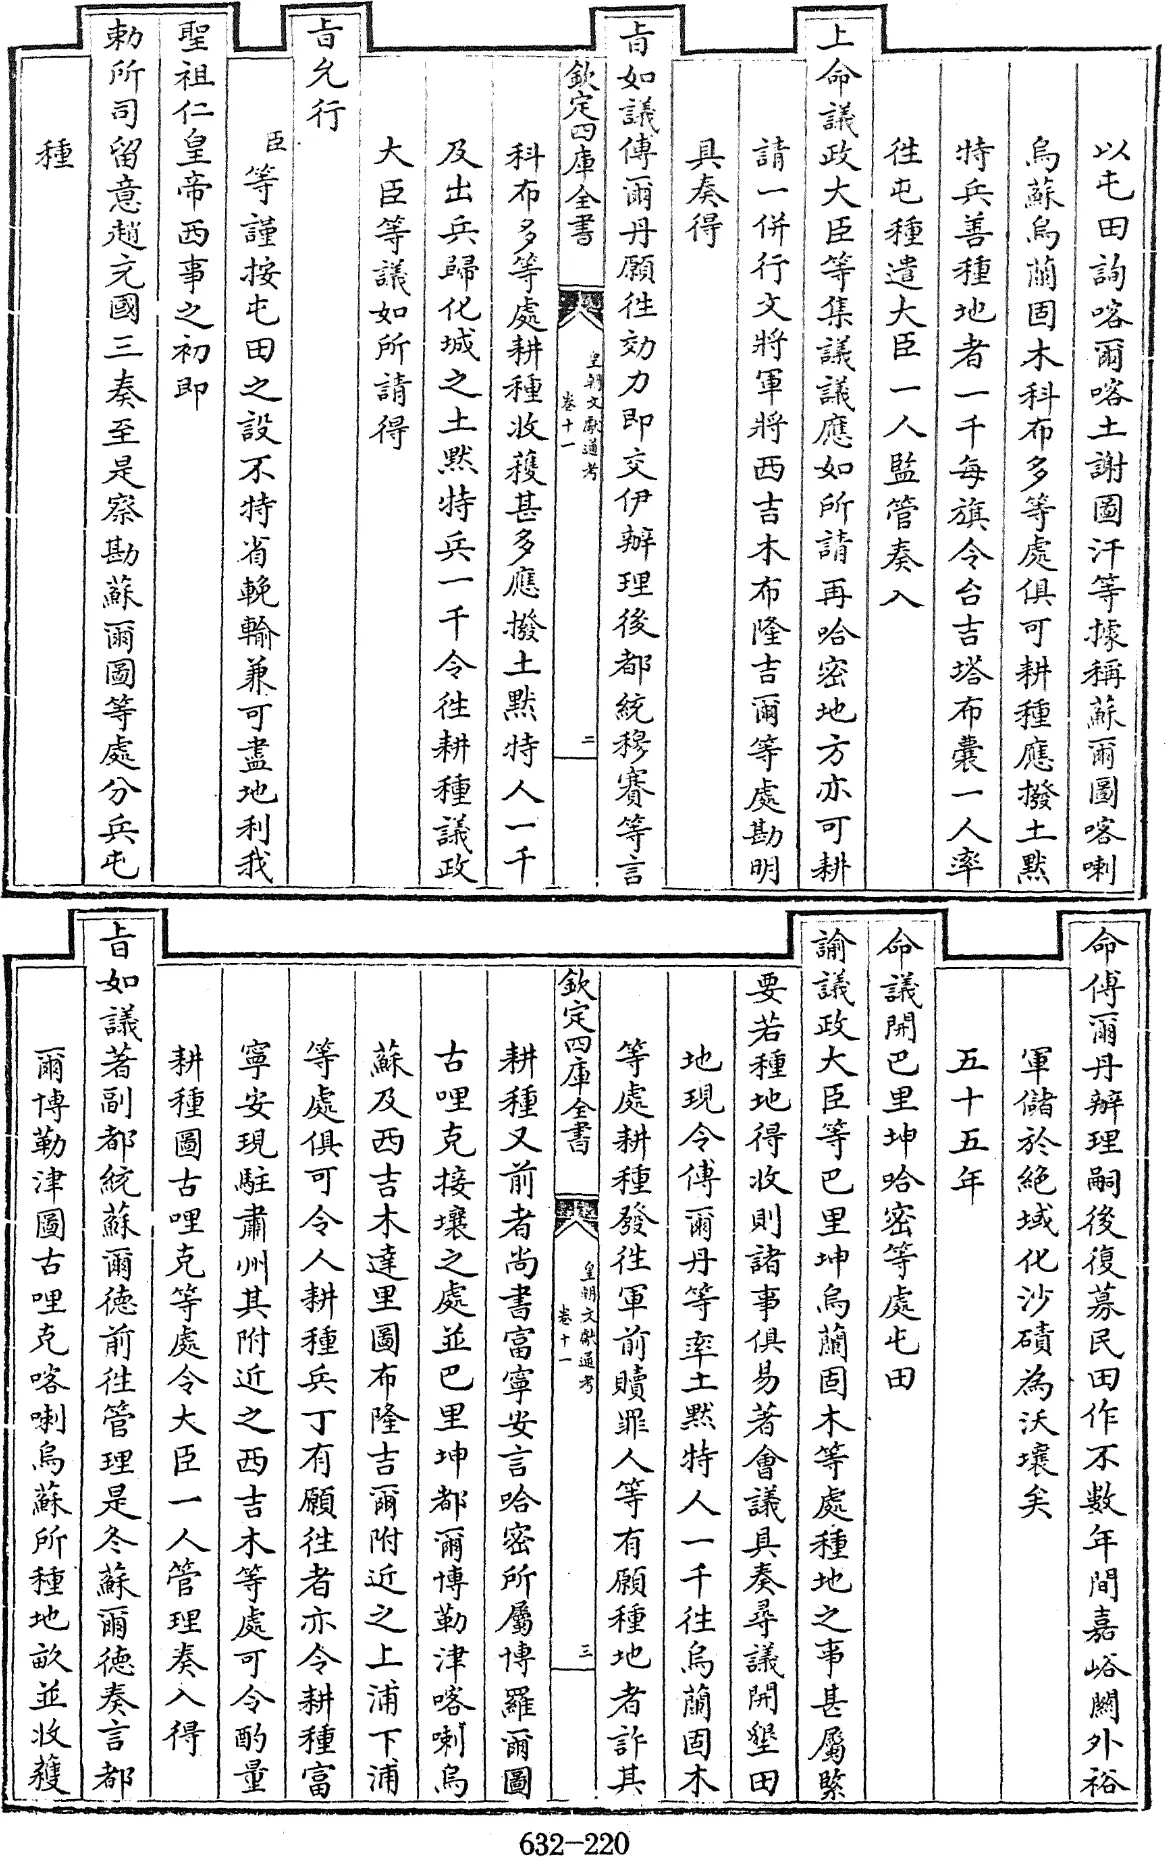 以屯田詢喀爾喀土謝圖汗等據稱蘇爾圖喀喇
烏蘇烏蘭固木科布多等處俱可耕種應撥土黙
特兵善種地者一千每旗令台吉塔布囊一人率
往屯種遣大臣一人監管奏入
上命議政大臣等集議議應如所請再哈密地方亦可耕
請一併行文將軍將西吉木布隆吉爾等處勘明
具奏得
㫖如議傅爾丹願往効力即交伊辦理後都統穆賽等言
欽定四庫全書
皇朝文獻通考
卷十一
二
科布多等處耕種收穫甚多應撥土黙特人一千
及出兵歸化城之土黙特兵一千令往耕種議政
大臣等議如所請得
㫖允行
臣等謹按屯田之設不特省輓輸兼可盡地利我
聖祖仁皇帝西事之初即
勅所司留意趙充國三奏至是察勘蘇爾圖等處分兵屯
種
命傅爾丹辦理嗣後復募民田作不數年間嘉峪關外裕
軍儲於絶域化沙磧為沃壤矣
五十五年
命議開巴里坤哈密等處屯田
諭議政大臣等巴里坤烏蘭固木等處種地之事甚屬緊
要若種地得收則諸事俱易著會議具奏尋議開墾田
地現令傅爾丹等率土黙特人一千往烏蘭固木
等處耕種發往軍前贖罪人等有願種地者許其
欽定四庫全書
皇朝文獻通考
卷十一
三
耕種又前者尚書富寧安言哈密所屬博羅爾圖
古哩克接壤之處並巴里坤都爾博勒津喀喇烏
蘇及西吉木達里圖布隆吉爾附近之上浦下浦
等處俱可令人耕種兵丁有願往者亦令耕種富
寧安現駐肅州其附近之西吉木等處可令酌量
耕種圖古哩克等處令大臣一人管理奏入得
㫖如議著副都統蘇爾德前往管理是冬蘇爾德奏言都
爾博勒津圖古哩克喀喇烏蘇所種地畝並收穫
632-220